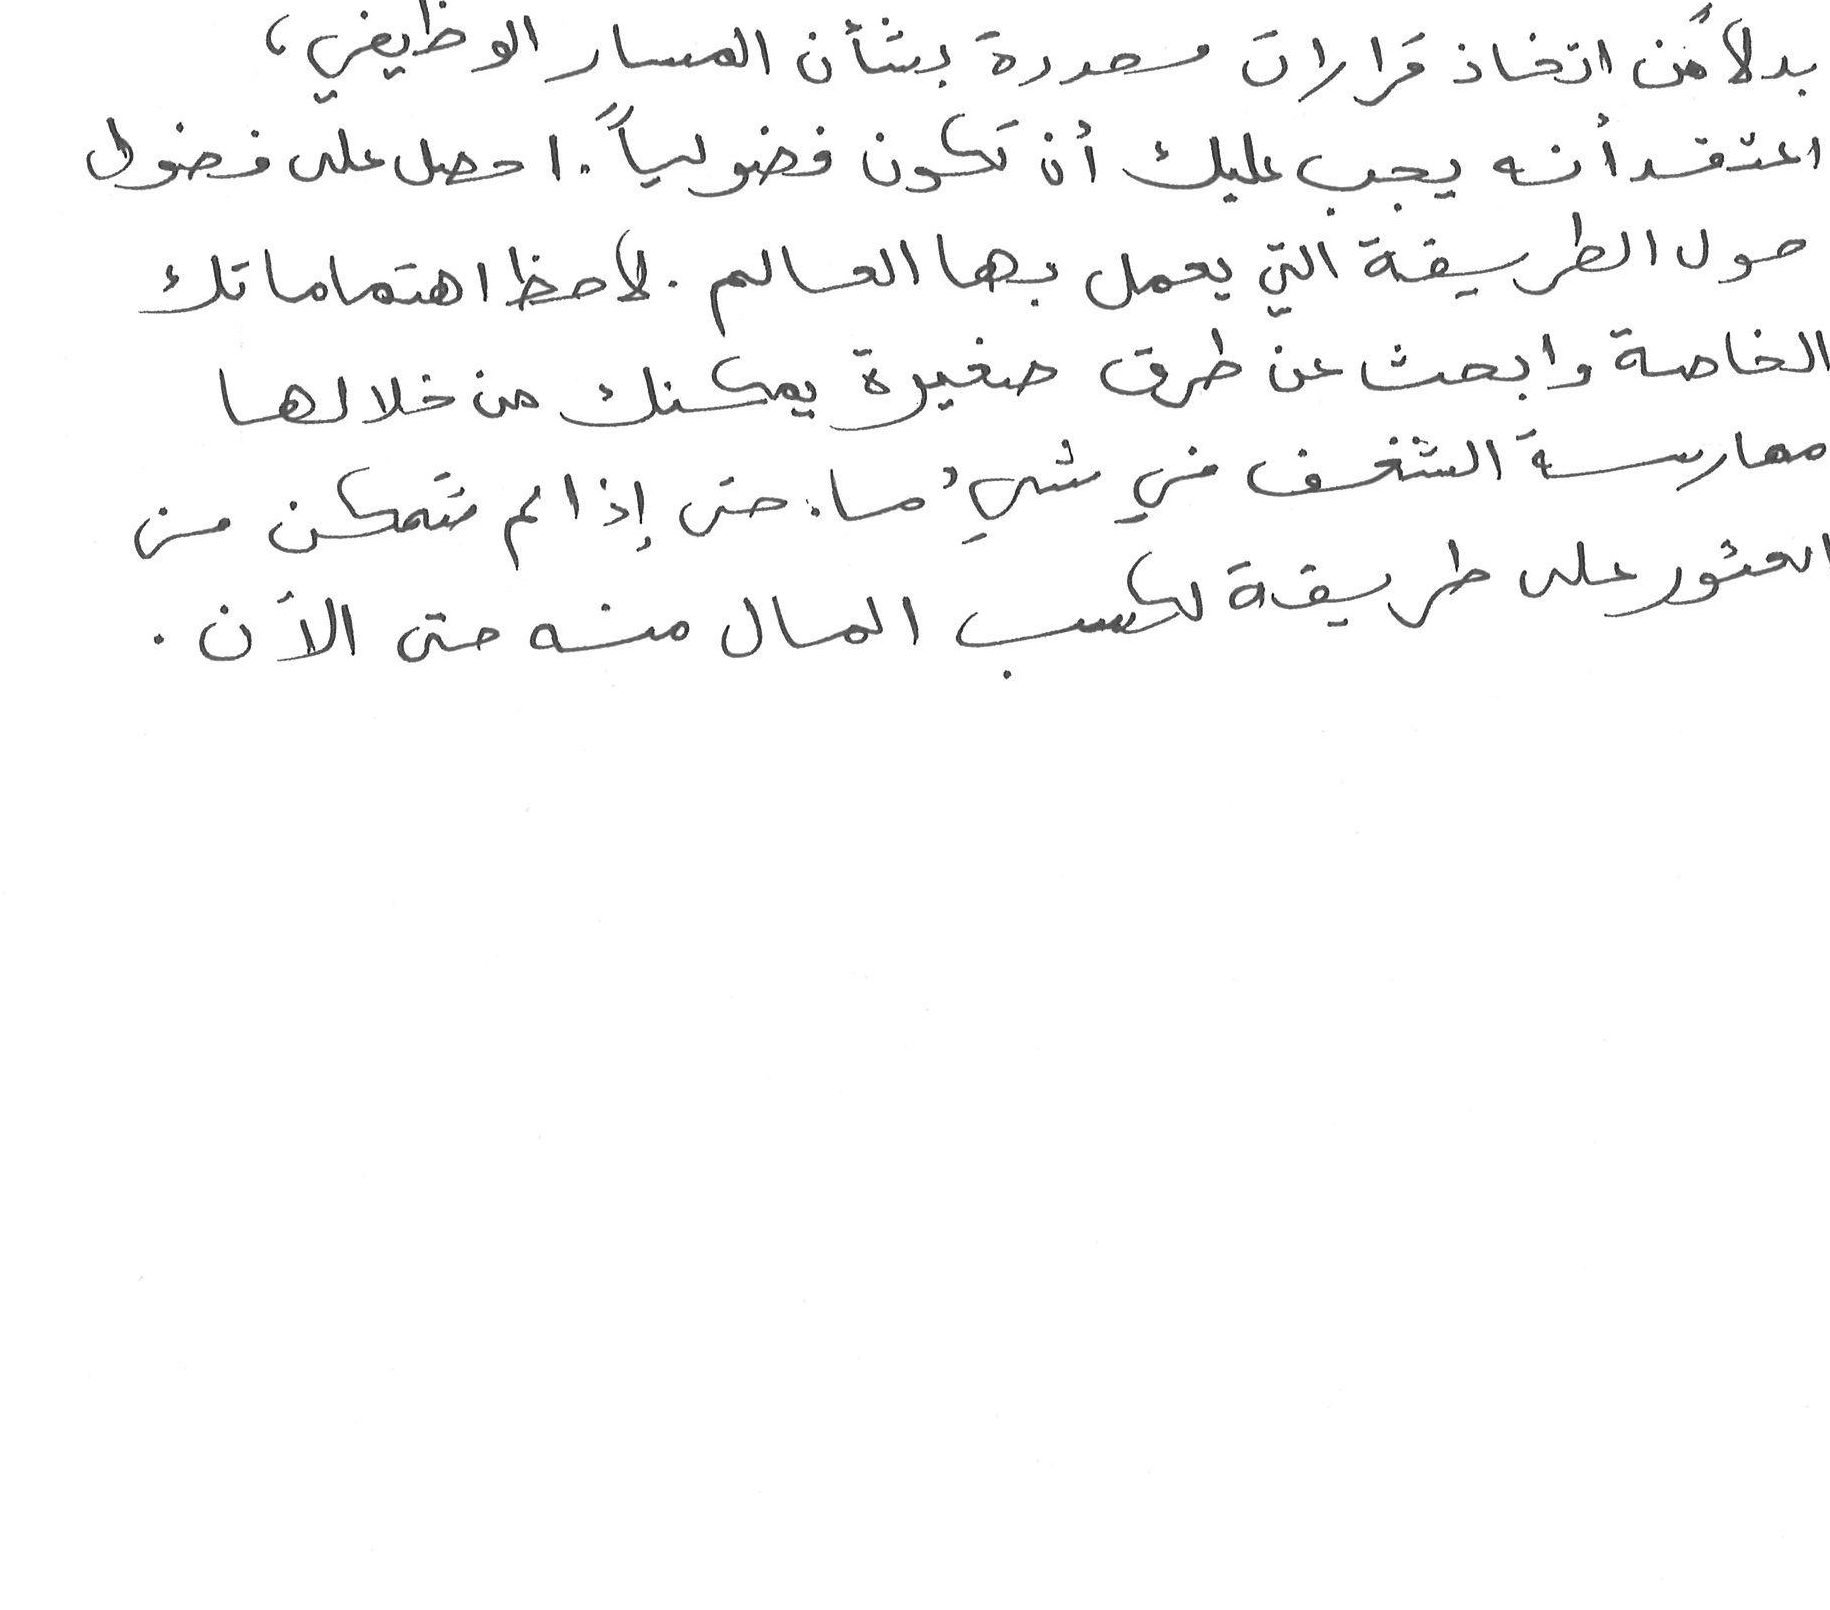 بدلاً من اتخاذ قرارات محددة بشأن المسار الوظيفي،
اعتقد أنه يجب عليك أن تكون فضولياً. احصل على فضول
حول الطريقة التي يعمل بها العالم. لاحظ اهتماماتك
الخاصة وابحث عن طرق صغيرة يمكنك من خلالها
ممارسة الشغف في شيء ما. حتى إذا لم تتمكن من
العثور على طريقة لكسب المال منه حتى الآن.